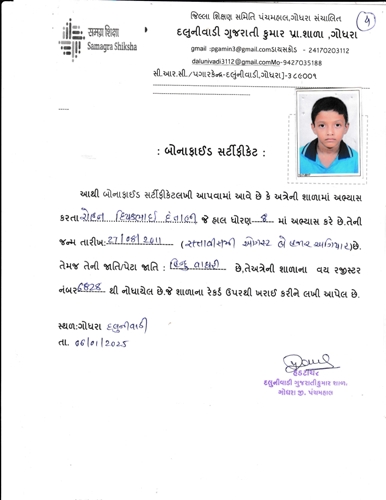 समग्र शिक्षा
Samagra Shiksha
જિલ્લા શિક્ષણ સમિતિ પંચમહાલ,ગોધરા સંચાલિત
દલુનીવાડી ગુજરાતી કુમાર પ્રા.શાળા ,ગોધરા
gmail :pgamin3@gmail.comડાયસકોડ - 24170203112
dalunivadi3112@gmail.comMo-9427035188
સી.આર.સી./પગારકેન્દ્ર-દલુનીવાડી,ગોધરા]-૩૮૯૦૦૧
4
: બોનાફાઈડ સર્ટીફીકેટ :
આથી બોનાફાઈડ સર્ટીફીકેટલખી આપવામાં આવે છે કે અત્રેની શાળામાં અભ્યાસ
કરતા જે હાલ ધોરણ માં અભ્યાસ કરે છે.તેની
જન્મ તારીખ: 27/08/2011 (સત્તાવીસમી ઓગસ્ટ બે હજાર અગિયાર)છે.
તેમજ તેની જાતિ/પેટા જાતિ : હિન્દુ છે,તેઅત્રેની શાળાના વય રજીસ્ટર
નંબર 6828 થી નોધાયેલ છે.જે શાળાના રેકર્ડ ઉપરથી ખરાઈ કરીને લખી આપેલ છે.
સ્થળ:ગોધરા દલુનીવાડી
તા. 06/01/2025
હેડટીચર
દલુનીવાડી ગુજરાતીકુમાર શાળા
ગોધરા જી. પંચમહાલ